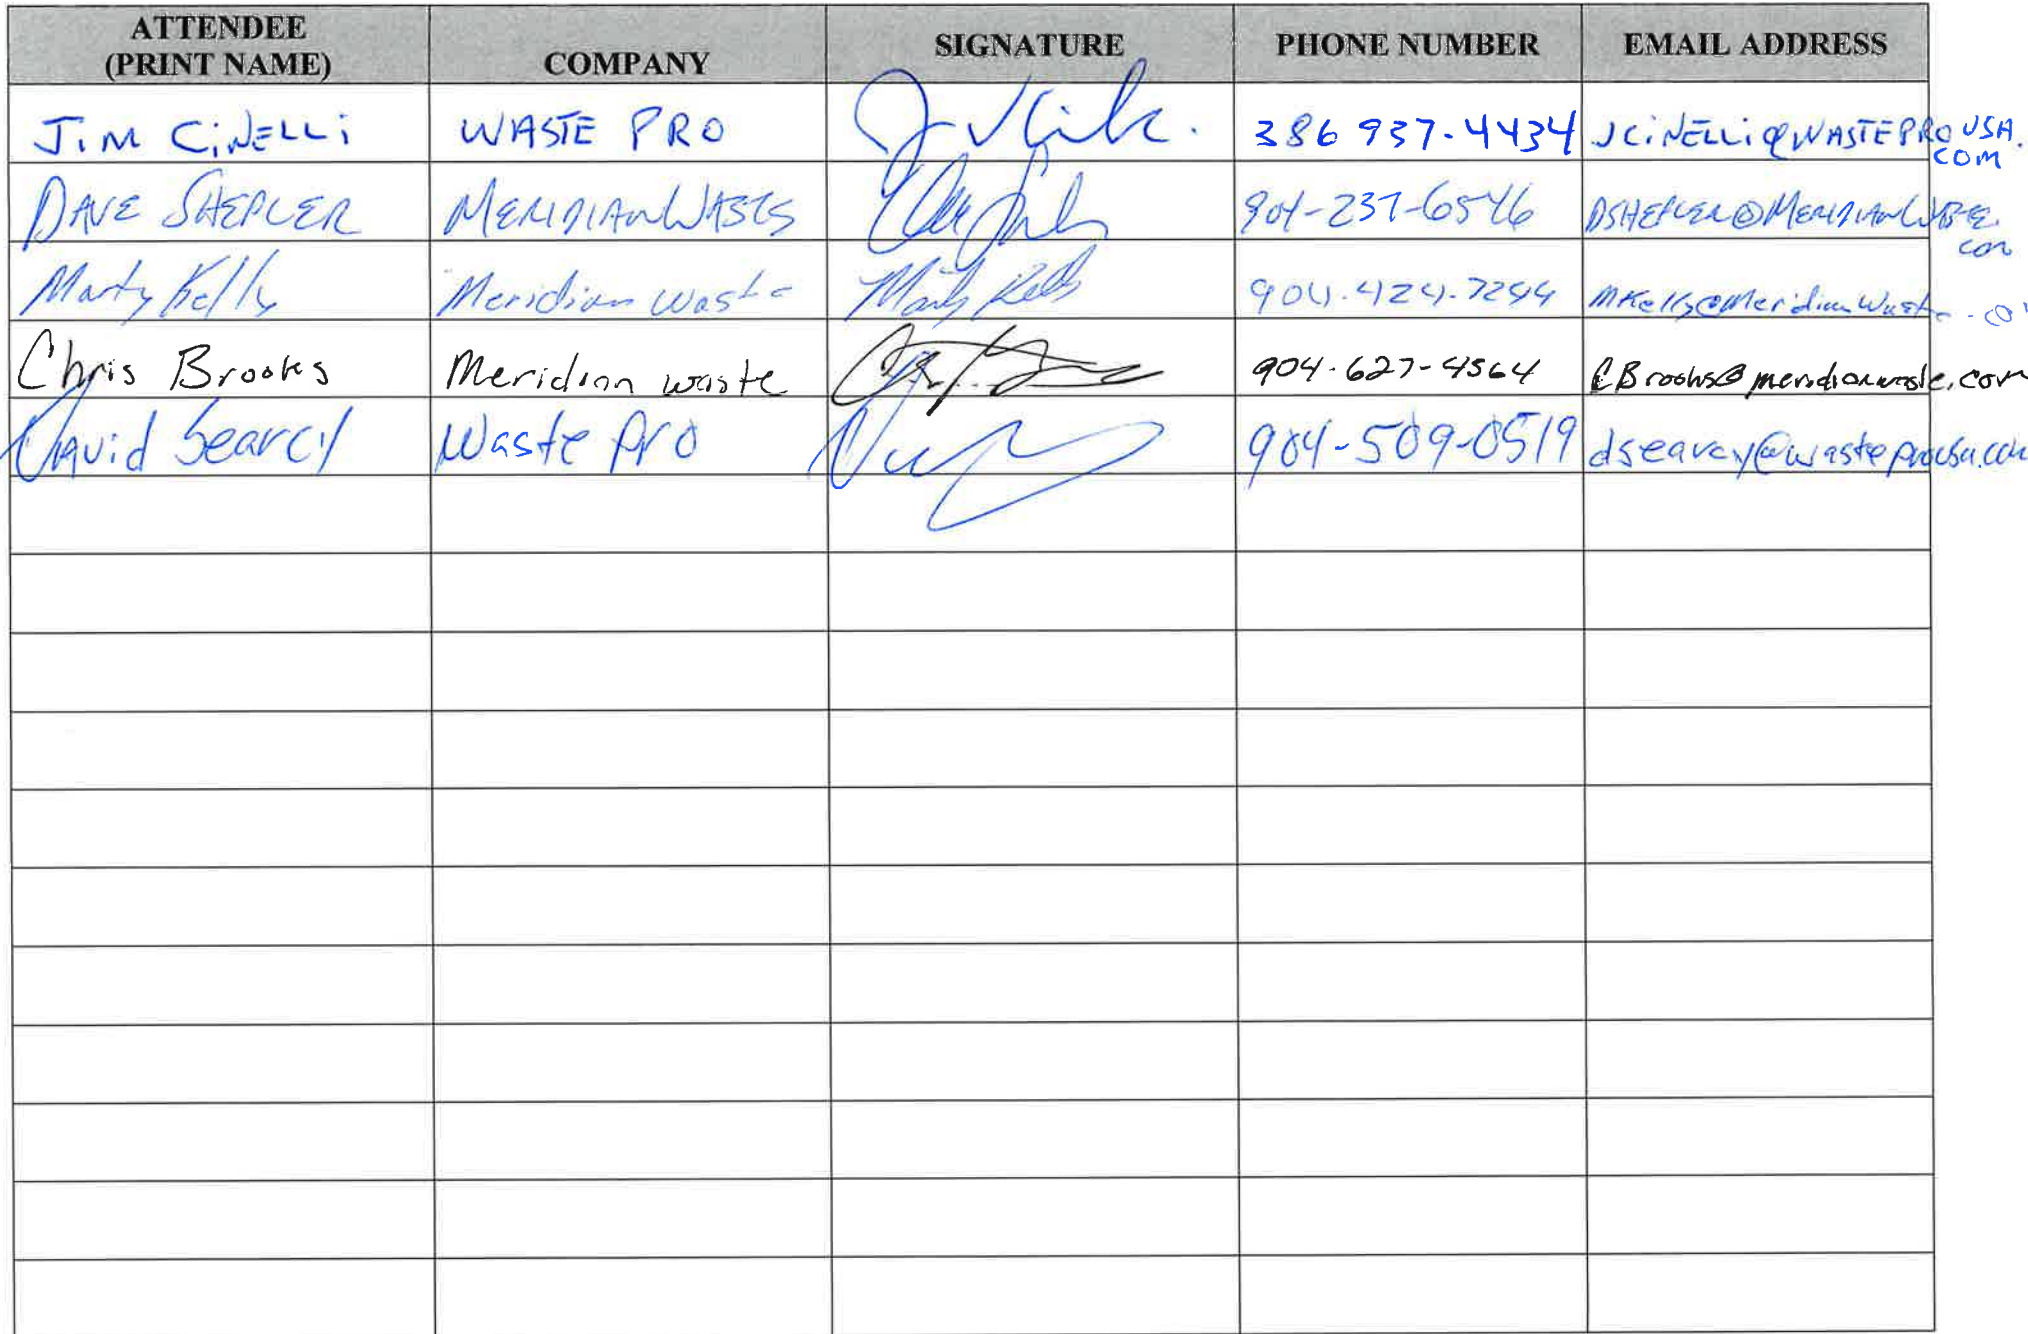 ATTENDEE (PRINT NAME) COMPANY SIGNATURE PHONE NUMBER EMAIL ADDRESS
JiM CiNELLi WASTE PRO 386 937-4434 JCiNELLi@WASTEPROUSA.COM
DAVE SHEPLER MERIDIAN WASTE 904-237-6546 DSHEPLER@MERIDIANWASTE.COM
Marty Kelly Meridian Waste Marty Kelly 904.424.7244 MKelly@MeridianWaste.co
Chris Brooks Meridian waste 904-627-4564 CBrooks@meridianwaste.com
David Searcy Waste Pro 904-509-0519 dsearcy@wasteprousa.com